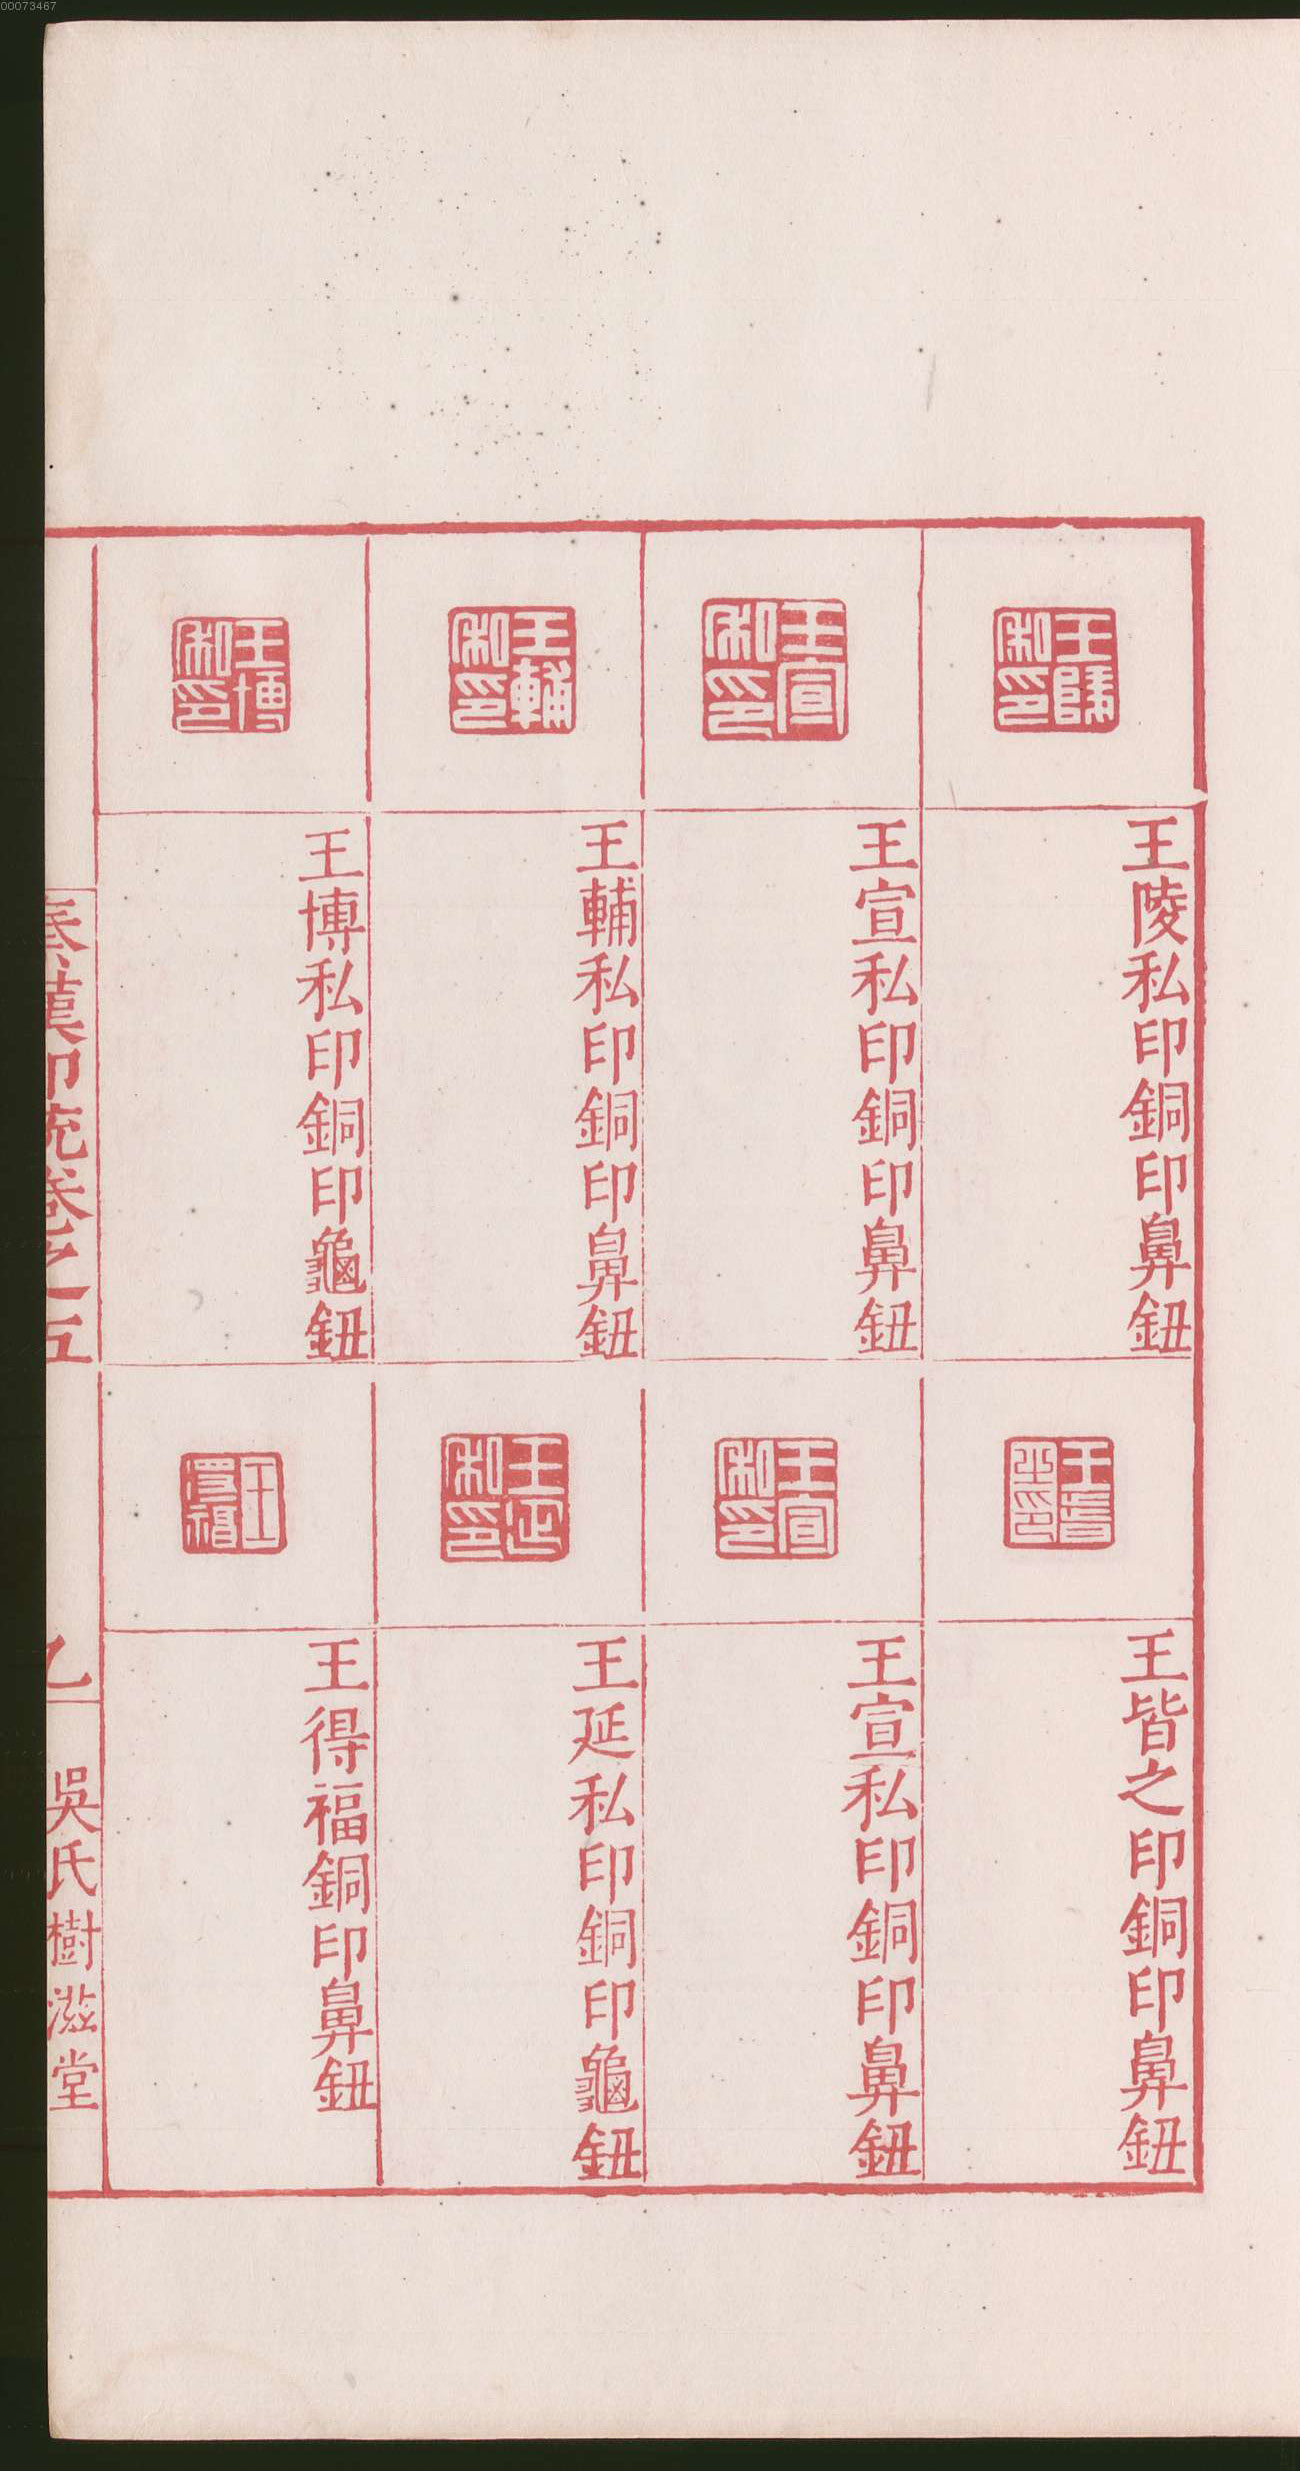 00073467
王陵私印
王陵私印銅印鼻鈕
王宣私印
王宣私印銅印鼻鈕
王輔私印
王輔私印銅印鼻鈕
王博私印
王博私印銅印龜鈕
王皆之印
王皆之印銅印鼻鈕
王宣私印
王宣私印銅印鼻鈕
王延私印
王延私印銅印龜鈕
王得福
王得福銅印鼻鈕
秦漢印統卷之五
吳氏樹滋堂